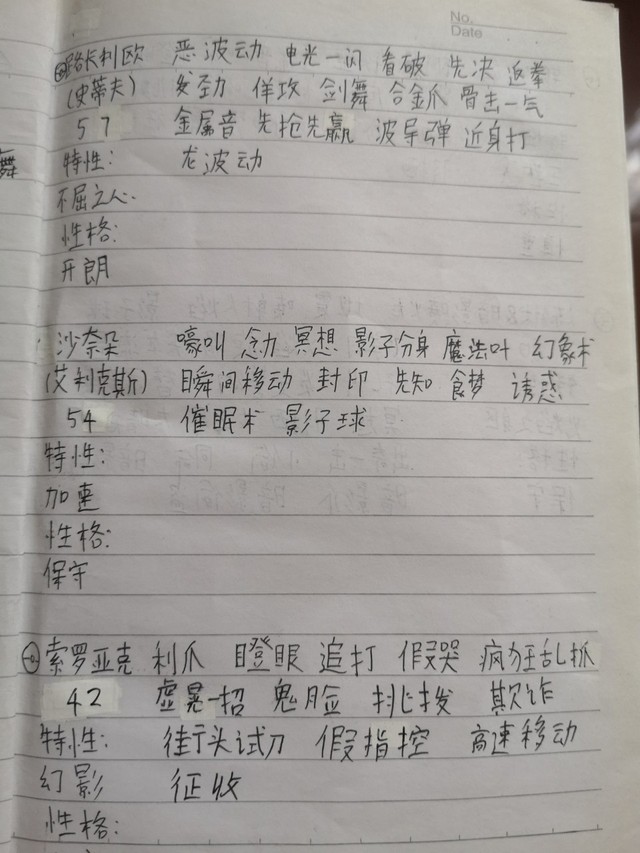 No.
Date
路卡利欧 恶波动 电光一闪 看破 先决 返拳
(史蒂夫) 发劲 佯攻 剑舞 合金爪 骨击一气
57 金属音 先抢先赢 波导弹 近身打
特性: 龙波动
不屈之人.
性格:
开朗
沙奈朵 嚎叫 念力 冥想 影子分身 魔法叶 幻象术
(艾利克斯) 瞬间移动 封印 先知 食梦 诱惑
54 催眠术 影子球
特性:
加速
性格:
保守
索罗亚克 利爪 瞪眼 追打 假哭 疯狂乱抓
42 虚晃一招 鬼脸 挑拨 欺诈
特性: 街头试刀 假指控 高速移动
幻影 征收
性格:
舞